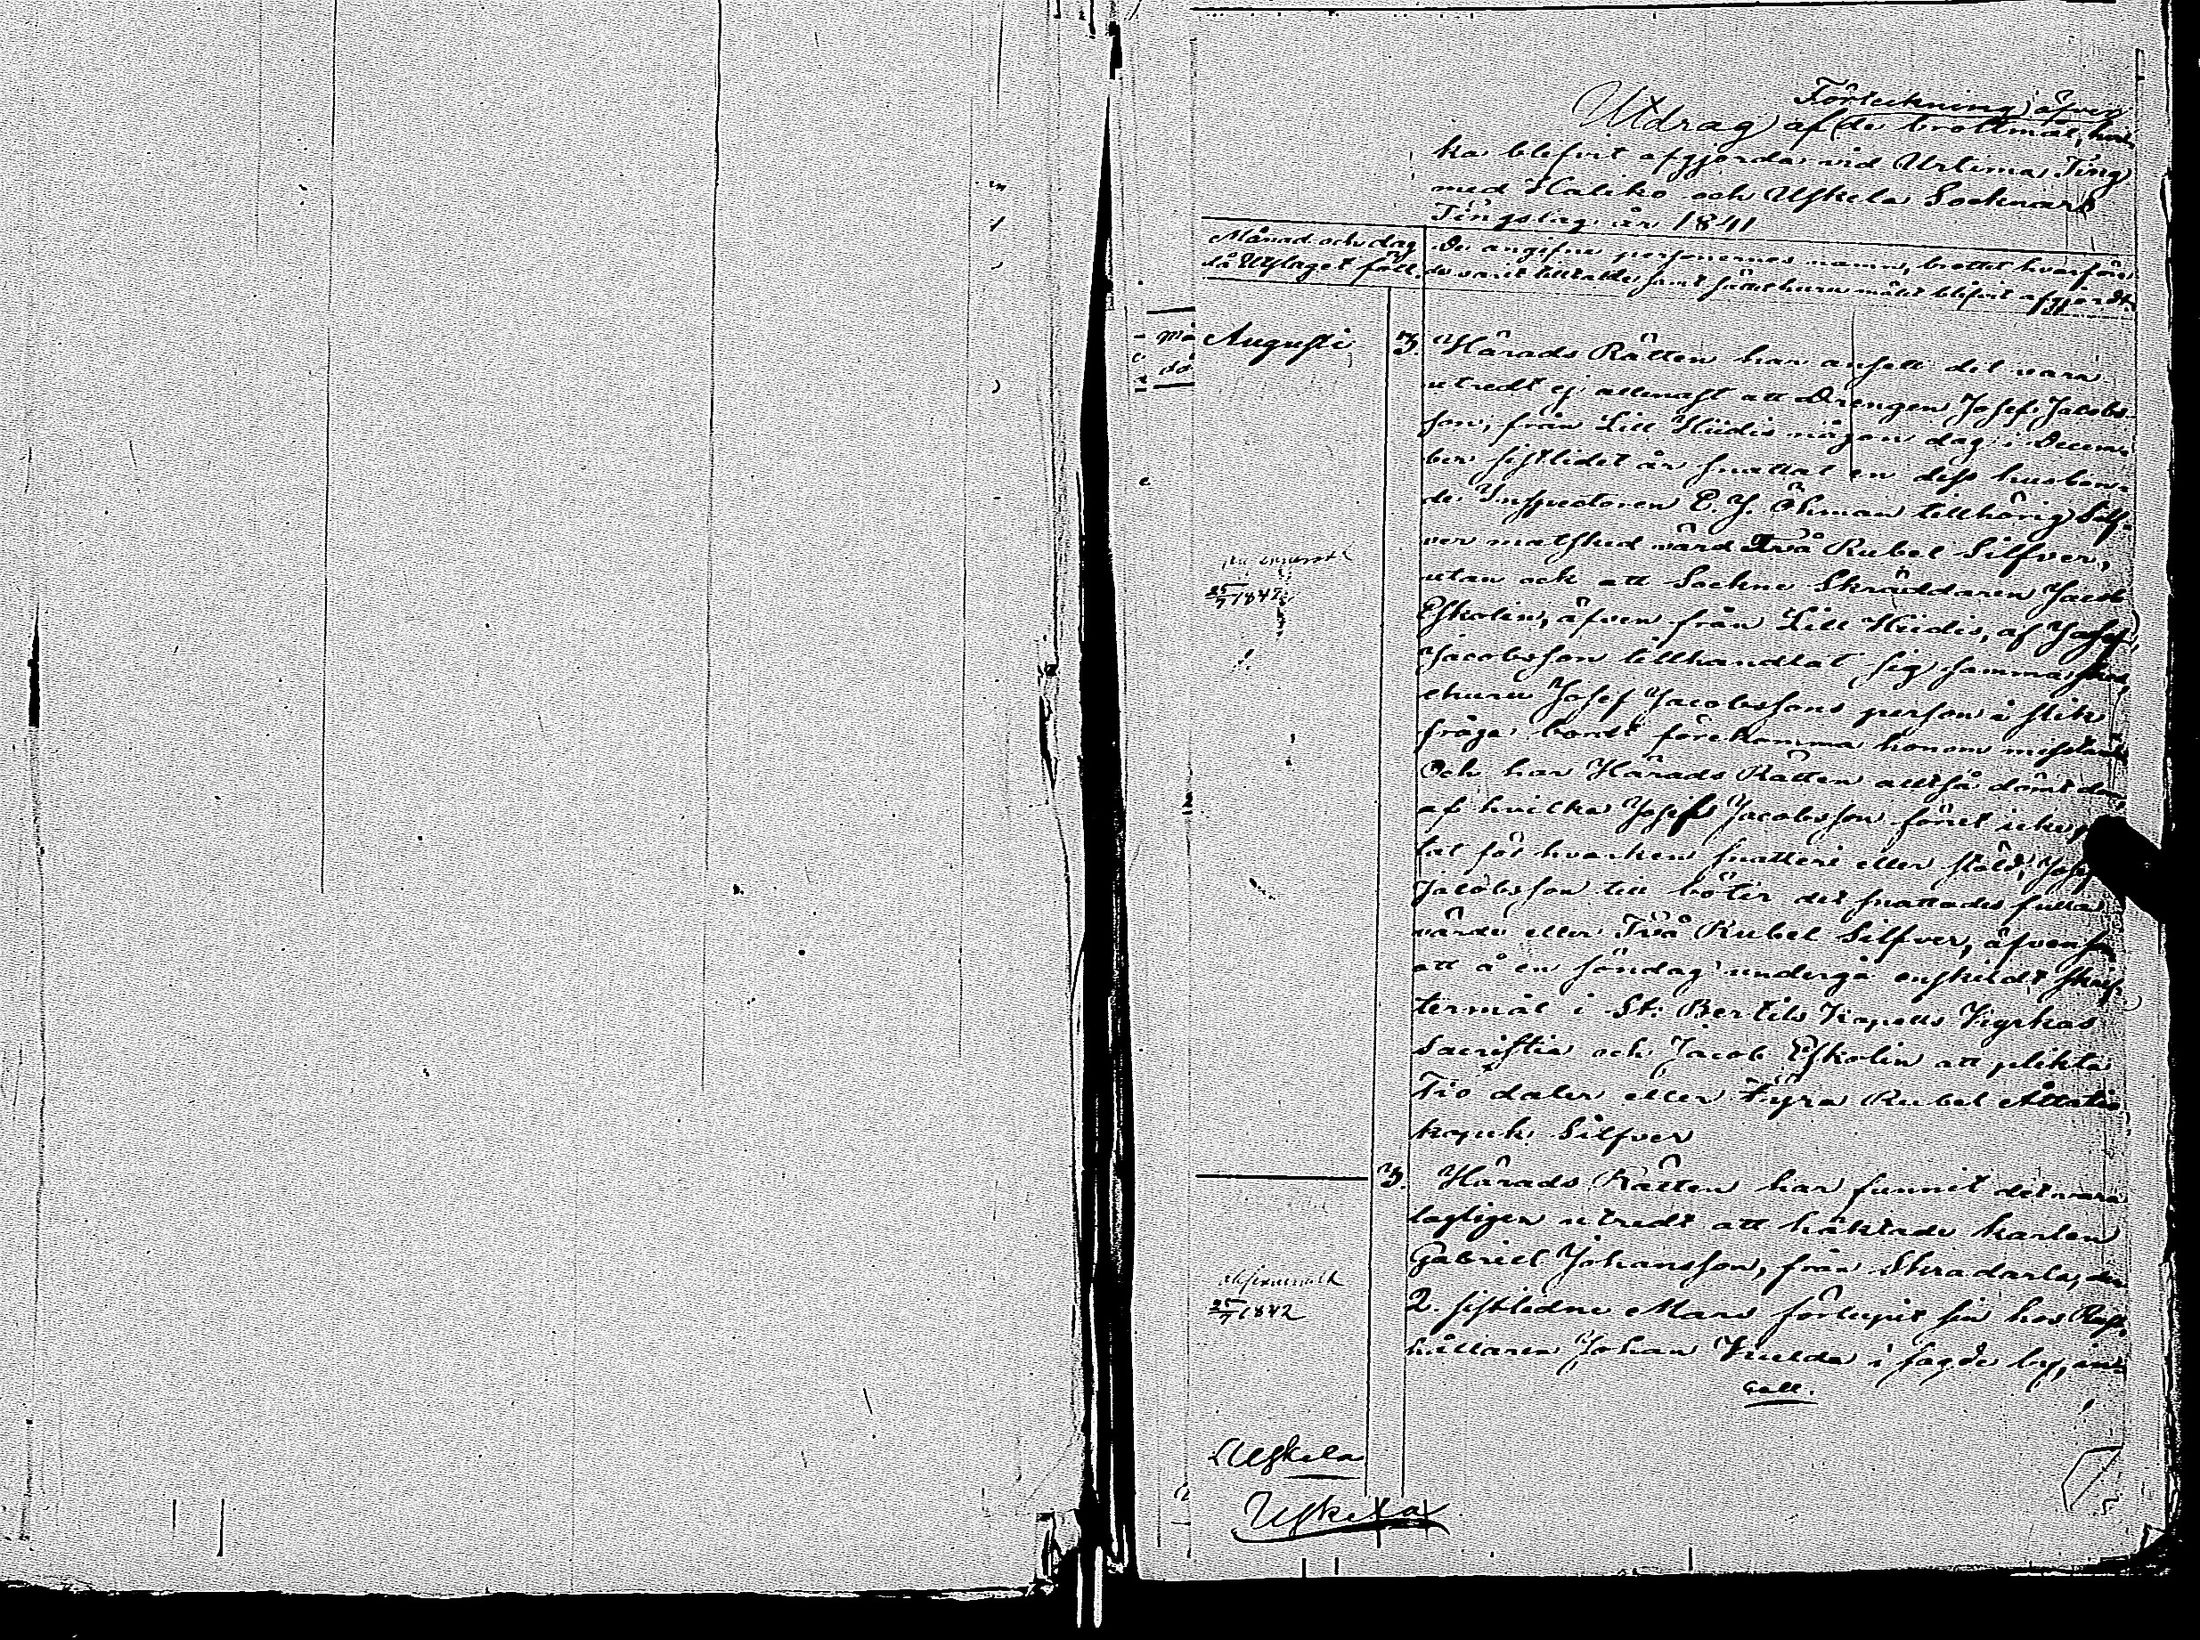 Förteckning öfver
Utdrag af de brottmål, hvil-
ka blifvit afgjorda vid Urtima Ting
med Haliko och Uskela Socknars
Tingslag år 1841
Månad och dag
då Utslaget fallit
De angifne personernes namn, brottet hvarföre
de varit tilltalde samt sättet huru målet blifvit afgjordt.
Augusti 3. Härads Rätten har ansett det vara
utredt ej allenast att Drengen Josef Jacobs-
son, från Lill Hiidis någon dag i Decem-
ber sistlidet år snattat en dess husbon-
de Inspectoren E. J. Öhman tillhörig Silf-
ver matsked värd Två Rubel Silfver,
utan ock att Sockne Skräddaren Jacob
Eskolin, äfven från Lill Hiidis, af Josef
Jacobsson tillhandlat sig samma sked,
ehuru Josef Jacobssons person i slik
fråga bordt förekomma honom misstänkt
Och har Härads Rätten alltså dömt dem,
af hvilka Josef Jacobsson förut icke
tat för hvarken snatteri eller stöld, Josef
Jacobsson till böter det snattades fulla
värde eller Två Rubel Silfver, äfvensom
att å en söndag undergå enskildt skrif-
termål i St. Bertils Kapells Kyrkas
Sacristia och Jacob Eskolin att plikta
Tio daler eller Fyra Rubel Åttatio
kopek Silfver
25/7 1842
3. Härads Rätten har funnit det vara
lagligen utredt att häktade karlen
Gabriel Johansson, från den
2. sistledne Mars förlupit sin hos Rust-
hållaren Johan i sagde by, in-
25/7 1842
Uskela
Uskela